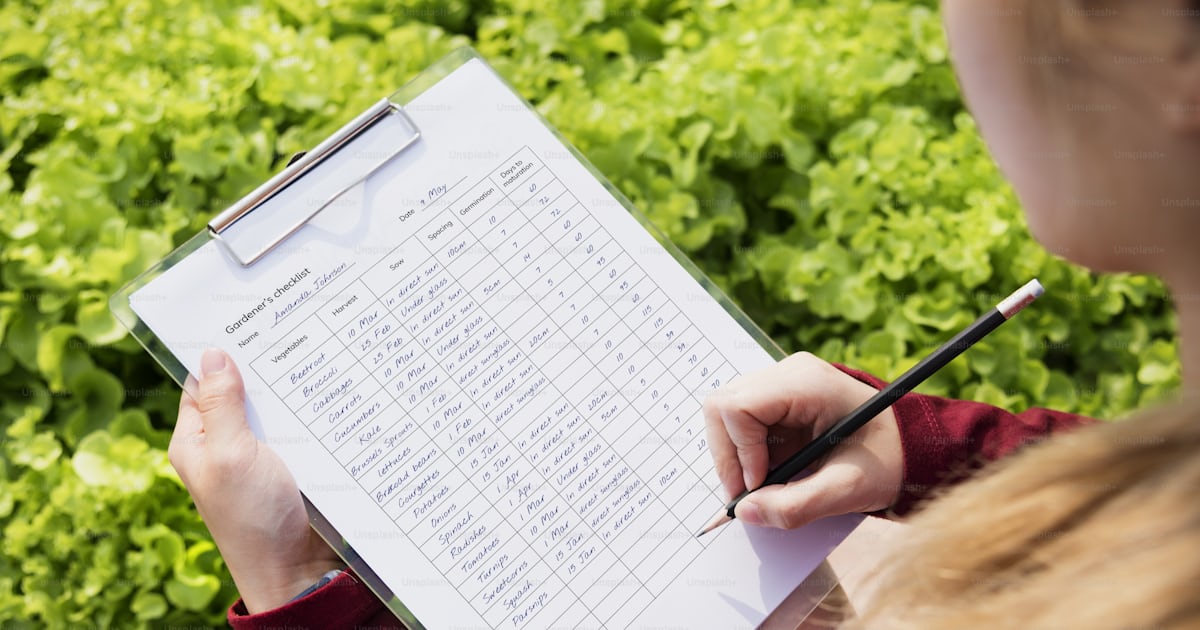 Gardener's checklist
Name Amanda Johnson Date 9 May
Vegetables Harvest Sow Spacing Germination Days to maturation
Beetroot 10 Mar In direct sun 10cm 10 60
Broccoli 25 Feb Under glass 7 72
Cabbages 25 Feb In direct sun 7 72
Carrots 10 Mar In direct sun 5cm 14 60
Cucumbers 10 Mar Under glass 7 60
Kale 10 Mar In direct sun 5 95
Brussels Sprouts 1 Feb direct sunglass 7 60
lettuces 10 Mar In direct sun 20cm
Broad beans 1 Feb In direct sun 115
Courgettes 10 Mar direct sunglass 115
Potatoes 15 Jan
Onions 15 Jan In direct sun
Spinach 1 Apr In direct sun 20cm
Radishes 1 Apr In direct sun 5cm
Tomatoes 1 Mar Under glass
Turnips 10 Mar In direct sun
Sweetcorns 1 Mar direct sunglass
Squash 15 Jan direct sunglass
Parsnips 15 Jan In direct sun 10cm 20
Unsplash+